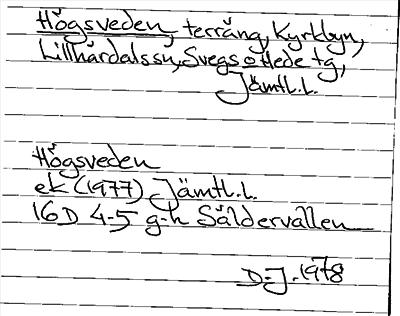 Högsveden, terräng, Kyrkbyn,
Lillhärdals sn, Svegs o Hede tg,
Jämtl.l.
Högsveden
ek (1977) Jämtl.l.
16D 4-5 g-h Säldervallen
D.J. 1978